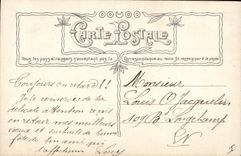 CARTE POSTALE
Tous les pays étrangers n'acceptent pas la Correspondance au recto. (se renseigner à la poste)
Toujours en retard!!
Je te remercie de ta
délicate attention reçois
en retour mes meilleurs
vœux et souhaits de bonne
fête de ton ami qui
Monsieur
Louis Jacquelin
Longchamp